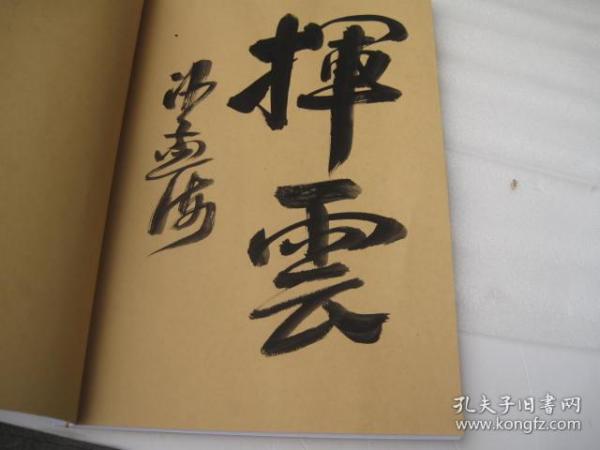 揮雲
孔夫子旧书网
www.kongfz.com